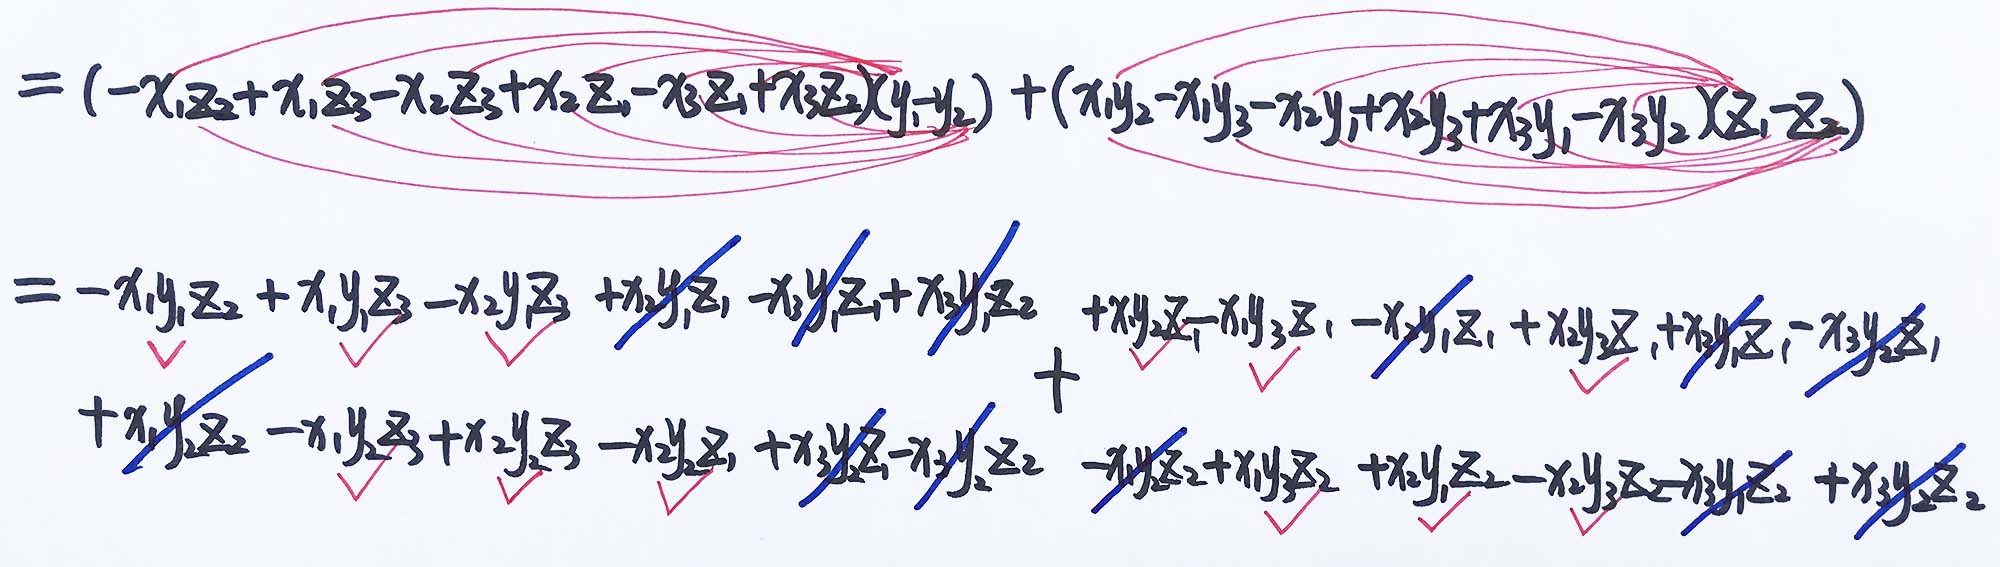 =(-x₁z₂+x₁z₃-x₂z₃+x₂z₁-x₃z₁+x₃z₂)(y₁-y₂)+(x₁y₂-x₁y₃-x₂y₁+x₂y₃+x₃y₁-x₃y₂)(z₁-z₂)
=-x₁y₁z₂+x₁y₁z₃-x₂y₁z₃+x₂y₁z₁-x₃y₁z₁+x₃y₁z₂
+x₁y₂z₂-x₁y₂z₃+x₂y₂z₃-x₂y₂z₁+x₃y₂z₁-x₃y₂z₂
+
+x₁y₂z₁-x₁y₃z₁-x₂y₁z₁+x₂y₃z₁+x₃y₁z₁-x₃y₂z₁
-x₁y₂z₂+x₁y₃z₂+x₂y₁z₂-x₂y₃z₂-x₃y₁z₂+x₃y₂z₂